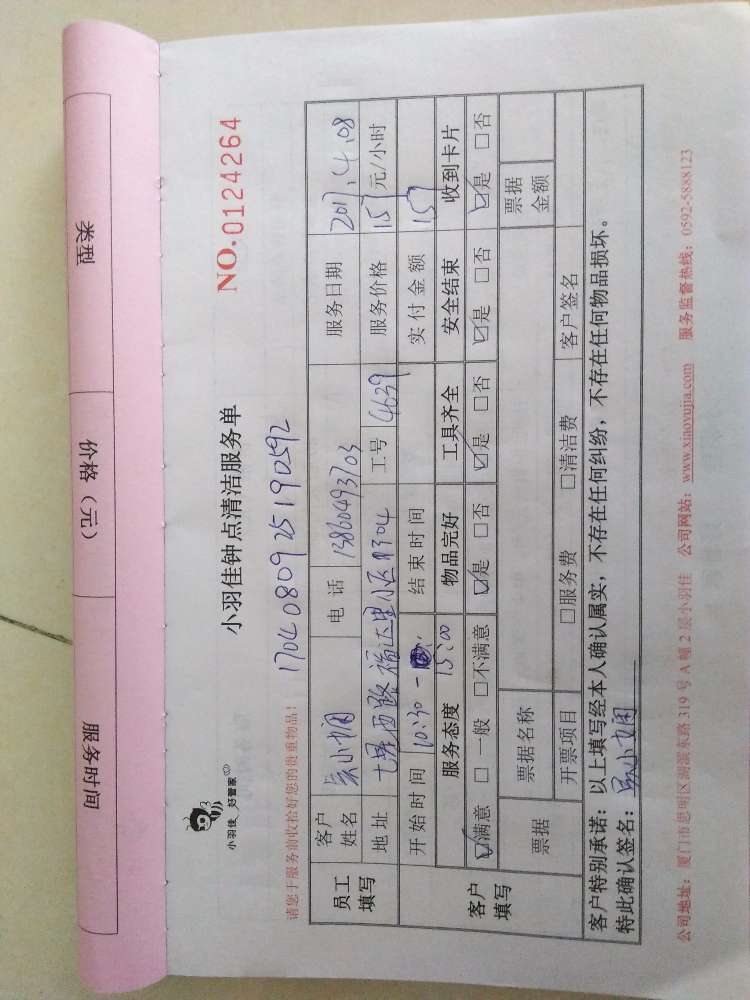 类型 价格（元） 服务时间
小羽佳 好管家
小羽佳钟点清洁服务单
NO.0124264
请您于服务前收拾好您的贵重物品！
1704080925190592
员工填写 客户姓名 吴小娴 电话 13860493703 服务日期 2017.4.08
地址 七星西路 福达里小区 工号 4639 服务价格 元/小时
开始时间 10:30- 15:00 结束时间 实付金额
客户填写 服务态度 物品完好 工具齐全 安全结束 收到卡片
☑满意 □一般 □不满意 ☑是 □否 ☑是 □否 ☑是 □否 ☑是 □否
票据 票据名称 票据金额
开票项目 □服务费 □清洁费 客户签名
客户特别承诺：以上填写经本人确认属实，不存在任何纠纷，不存在任何物品损坏。
特此确认签名：吴小娴
公司地址：厦门市思明区湖滨东路 319 号 A 幢 2 层小羽佳 公司网站：www.xiaoyujia.com 服务监督热线：0592-5888123